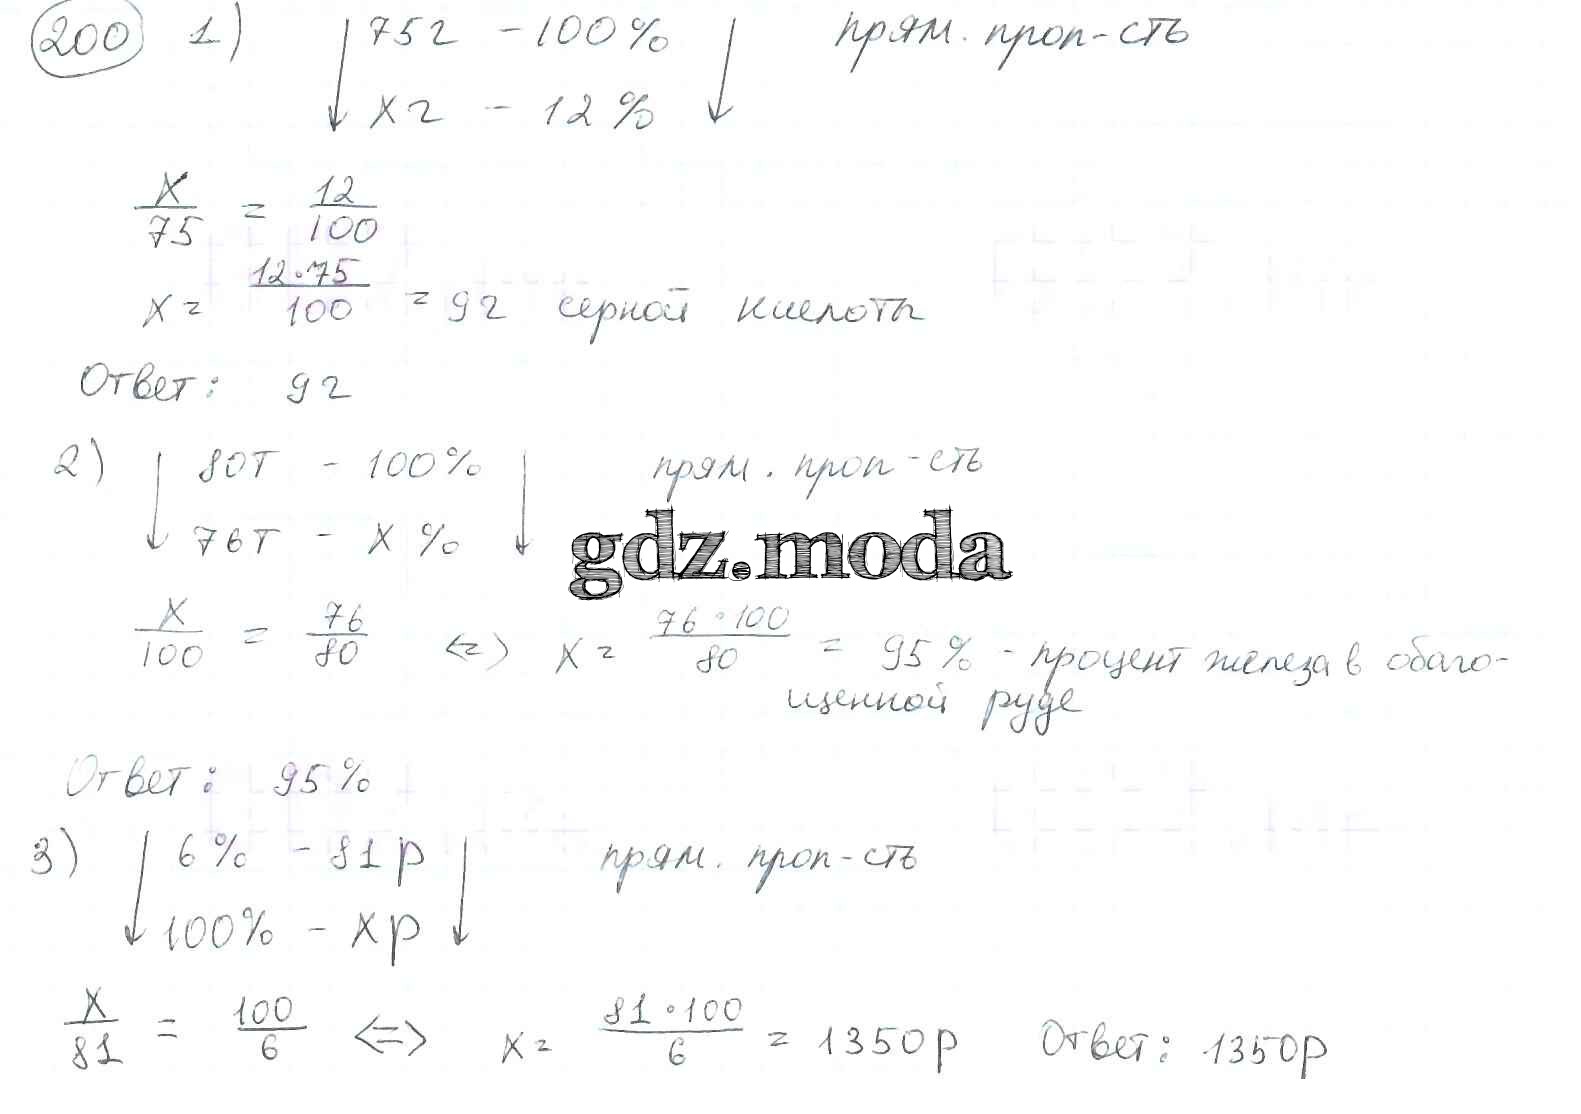 200 1) 75г - 100% прям. проп-сть
xг - 12%
x/75 = 12/100
x = 12·75/100 = 9г серной кислоты
Ответ: 9г
2) 80т - 100% прям. проп-сть
76т - x%
gdz.moda
x/100 = 76/80 <=> x = 76·100/80 = 95% - процент железа в обаго-
щенной руде
Ответ: 95%
3) 6% - 81р прям. проп-сть
100% - xр
x/81 = 100/6 <=> x = 81·100/6 = 1350р Ответ: 1350р